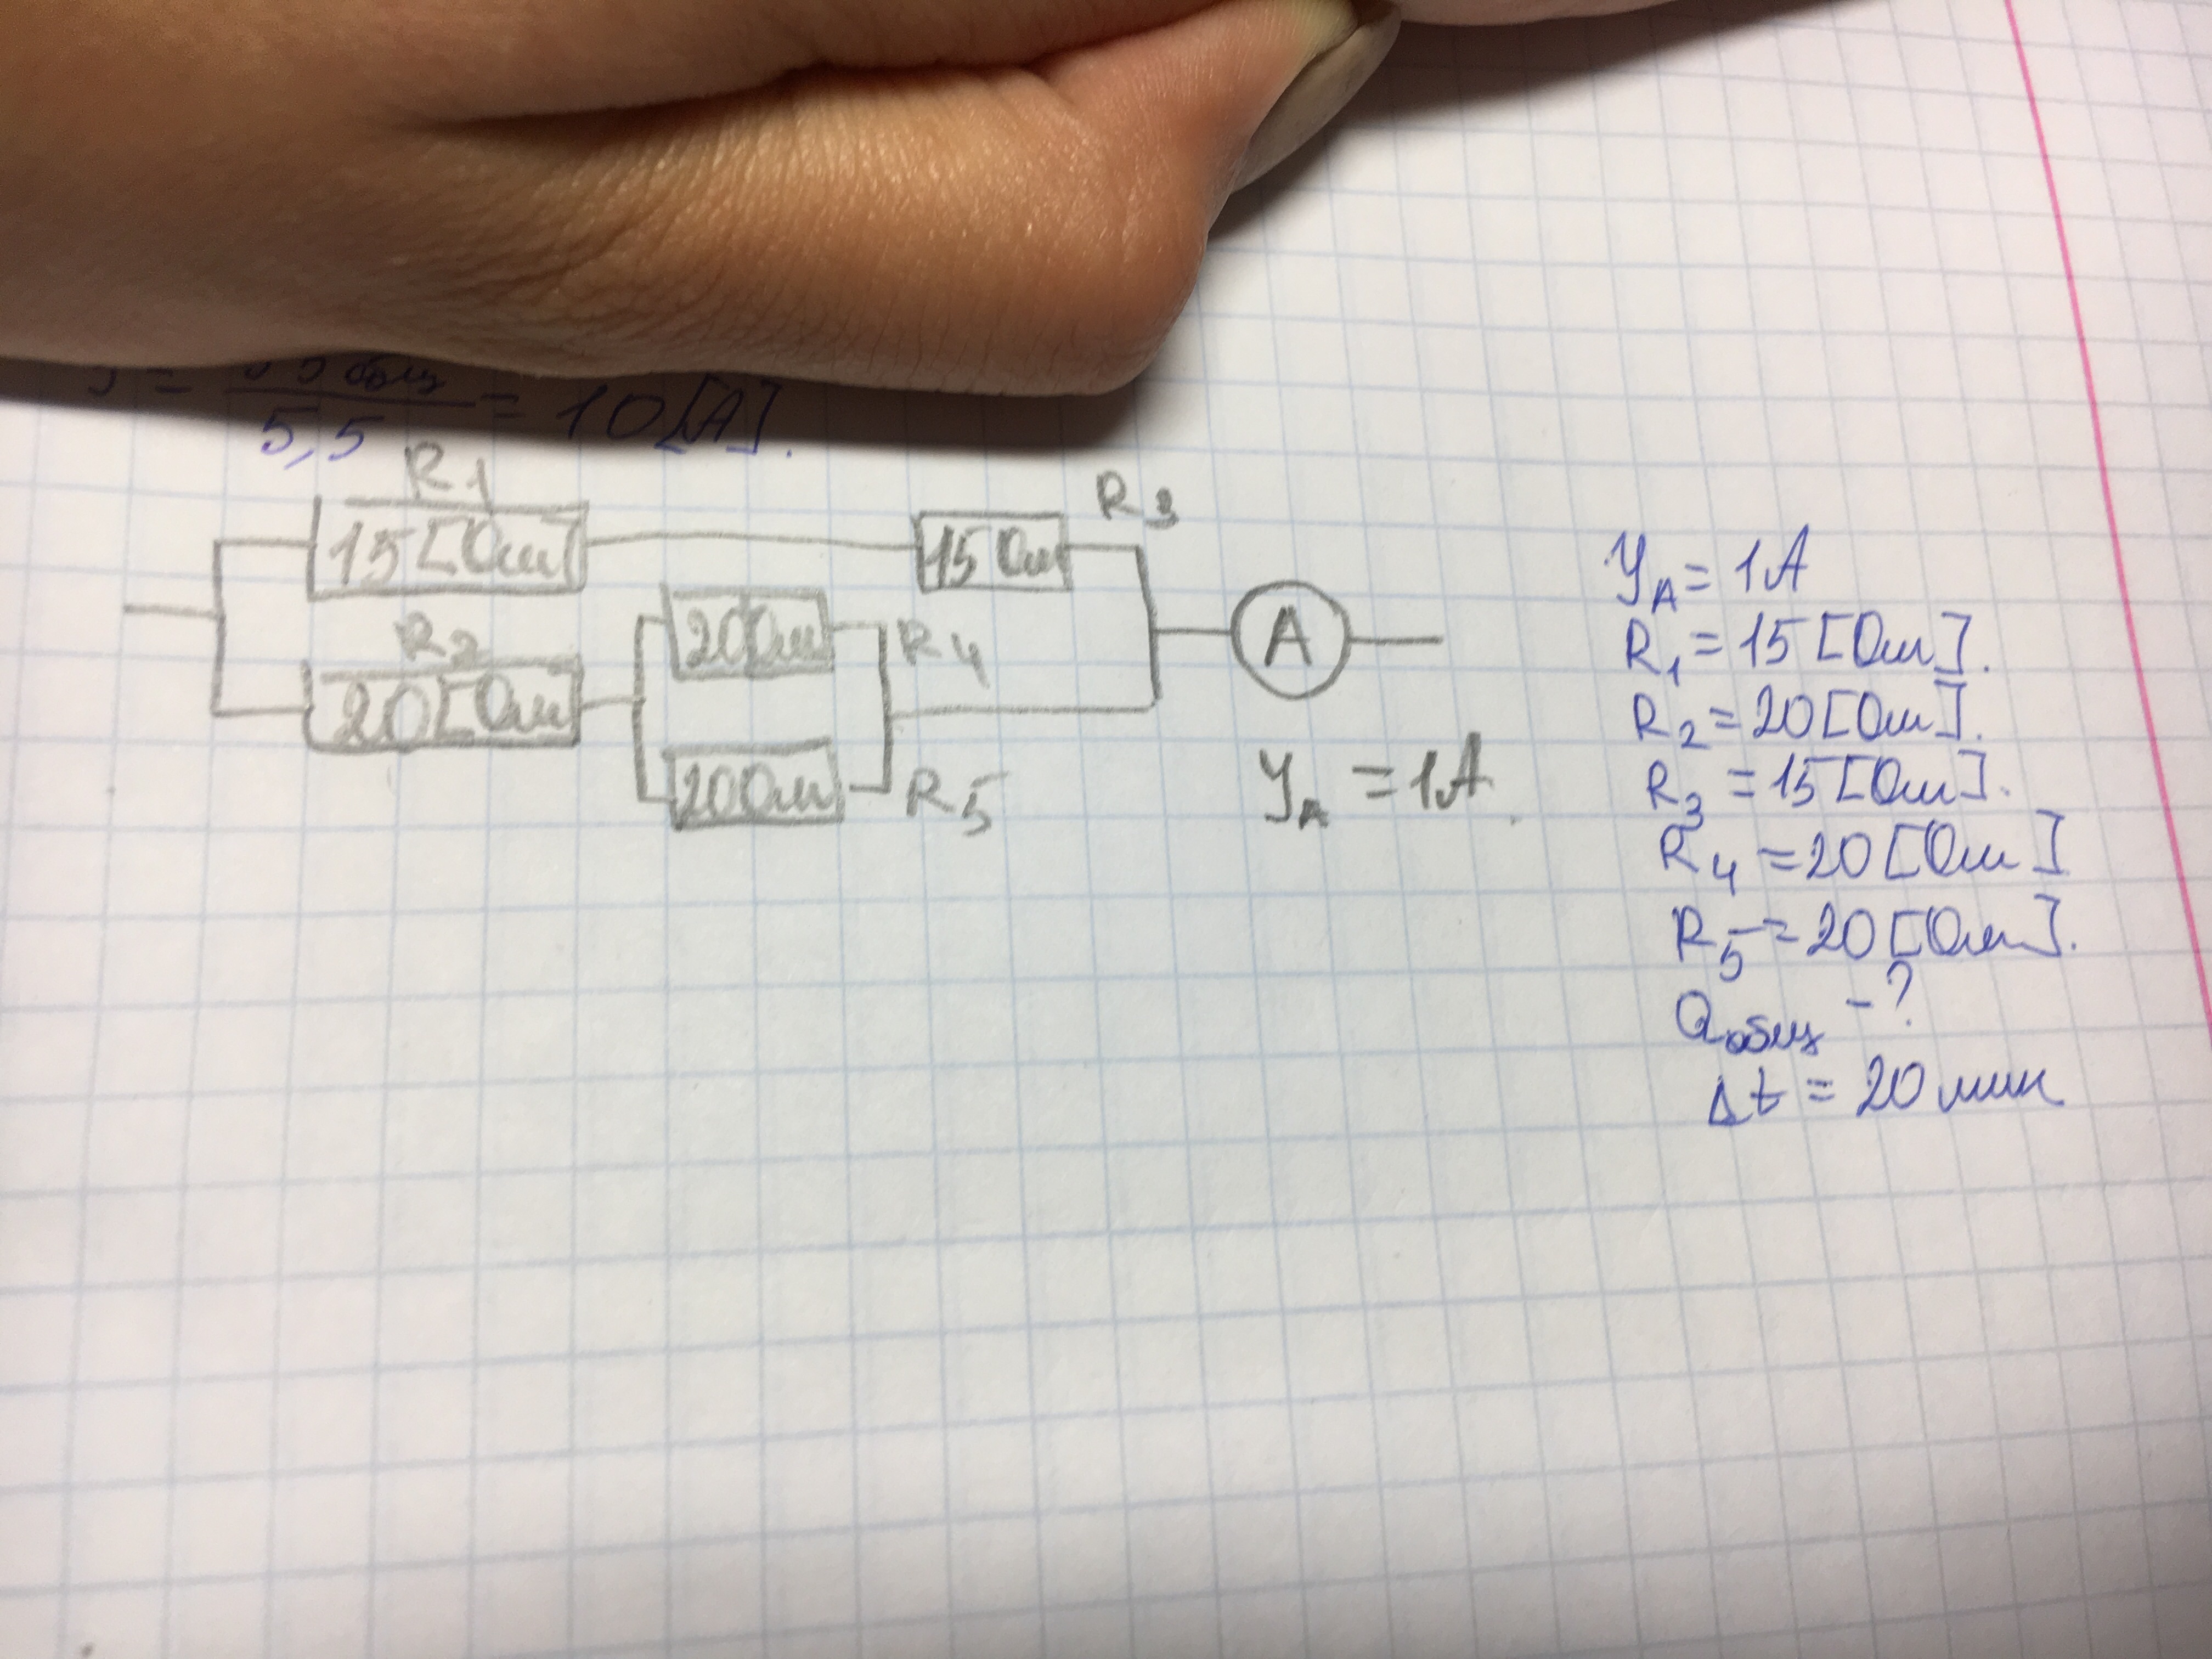 5,5 = 10[A].
R1
15[Ом]
R2
20[Ом]
20Ом
R4
20Ом
R5
15Ом
R3
A
УA = 1A
УA = 1A
R1 = 15[Ом].
R2 = 20[Ом].
R3 = 15[Ом].
R4 = 20[Ом]
R5 = 20[Ом].
Qобщ - ?
Δt = 20 мин